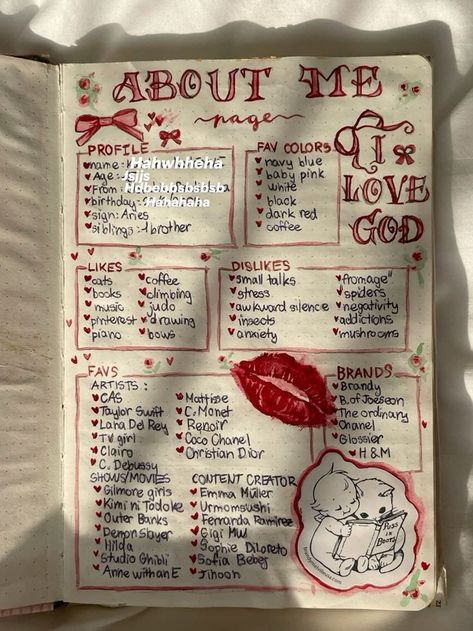 ABOUT ME
page
PROFILE
name:
Hahwhheha
Age:
Jsjjs
From
Hdbebbsbsbsb
birthday:
Hahahaha
sign: Aries
siblings: 1 brother
FAV COLORS
navy blue
baby pink
white
black
dark red
coffee
I
LOVE
GOD
LIKES
cats
books
music
pinterest
piano
coffee
climbing
judo
drawing
bows
DISLIKES
small talks
stress
awkward silence
insects
anxiety
"fromage"
spiders
negativity
addictions
mushrooms
FAVS
ARTISTS:
CAS
Taylor Swift
Lana Del Rey
TV girl
Clairo
C. Debussy
Mattisse
C. Monet
Renoir
Coco Chanel
Christian Dior
SHOWS/MOVIES
Gilmore girls
Kimi ni Todoke
Outer Banks
Demon slayer
Hilda
Studio Ghibli
Anne with an E
CONTENT CREATOR
Emma Müller
Urmomsushi
Fernanda Ramirez
Gigi MW
Sophie DiLoreto
Sofia Bebej
Jihooh
BRANDS
Brandy
B. of Joeseon
The ordinary
Chanel
Glossier
H&M
Puss
in
Boots